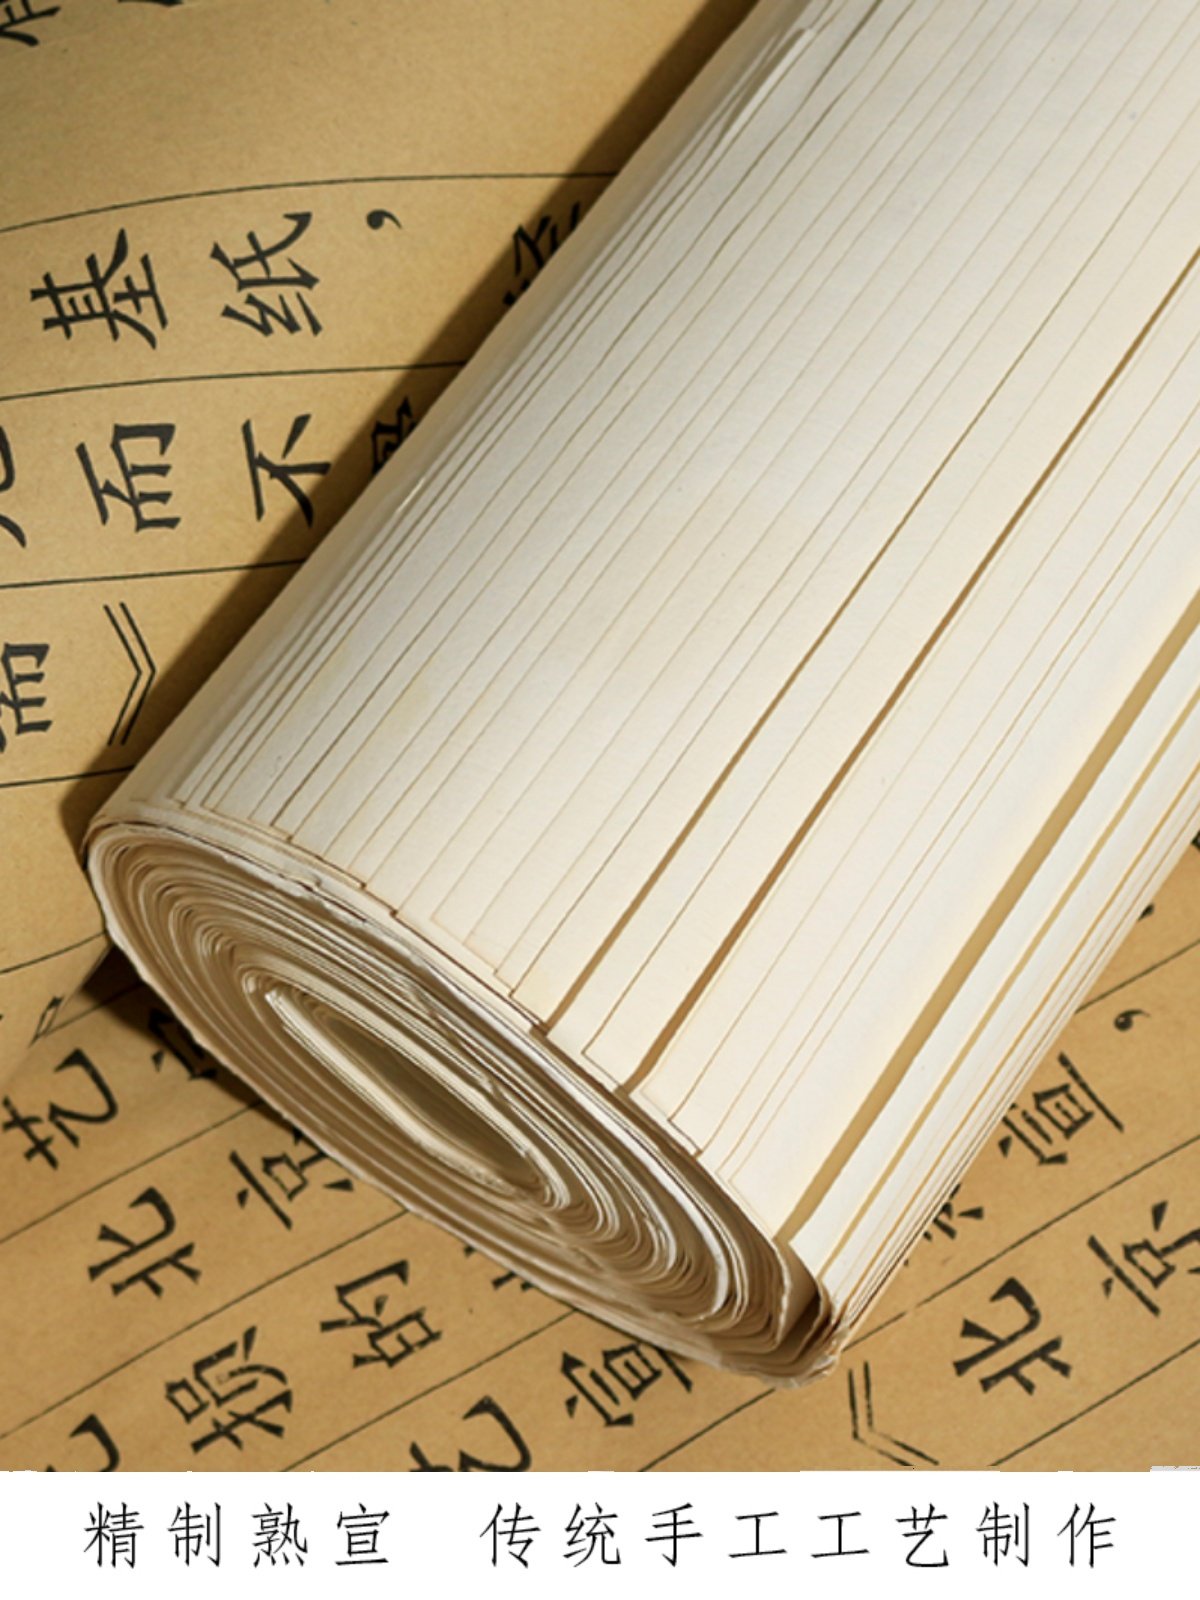 基纸，
而不
而》
艺
北京
损的
艺宣
宣，
《北京
精制熟宣 传统手工工艺制作